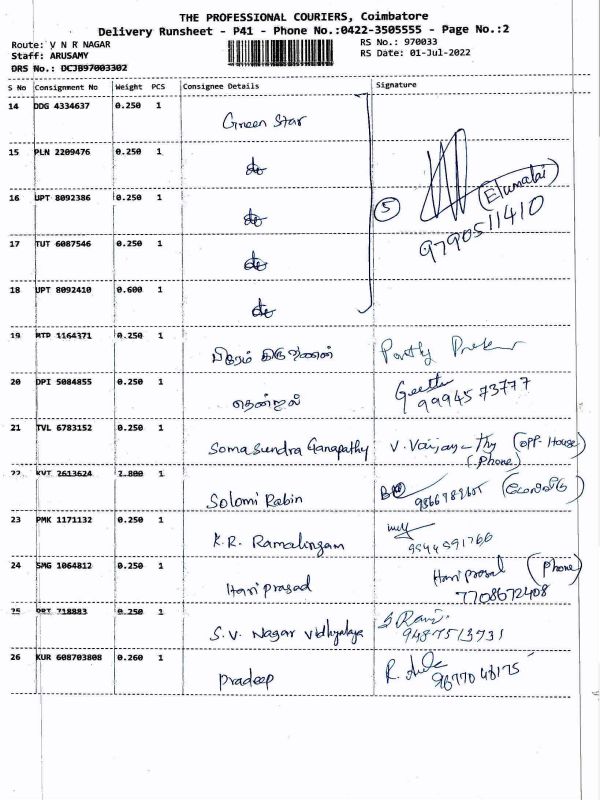 THE PROFESSIONAL COURIERS, Coimbatore
Delivery Runsheet - P41 - Phone No.:0422-3505555 - Page No.:2
Route: V N R NAGAR
RS No.: 970033
Staff: ARUSAMY
RS Date: 01-Jul-2022
DRS No.: DCJB97003302
S No Consignment No Weight PCS Consignee Details Signature
14 DDG 4334637 0.250 1
Green Star
15 PLN 2209476 0.250 1
do
16 UPT 8092386 0.250 1
do
5
(Elumalai)
9790511410
17 TUT 6087546 0.250 1
do
18 UPT 8092410 0.600 1
do
19 RTP 1164371 0.250 1
20 DPI 5084855 0.250 1
தென்றல்
Geetha
99945 73777
21 TVL 6783152 0.250 1
Soma Sundra Ganapathy
(opp. House)
(Phone)
22 KVT 2613624 2.800 1
Solomi Rabin
23 PMK 1171132 0.250 1
K.R. Ramalingam
9544591766
24 SMG 1064812 0.250 1
Hari prasad
Hari prasad (Phone)
7708672408
25 0.250 1
S.V. Nagar Vidhyalaya
S Ravi
9487513731
26 KUR 608703808 0.260 1
Pradeep
9677048175